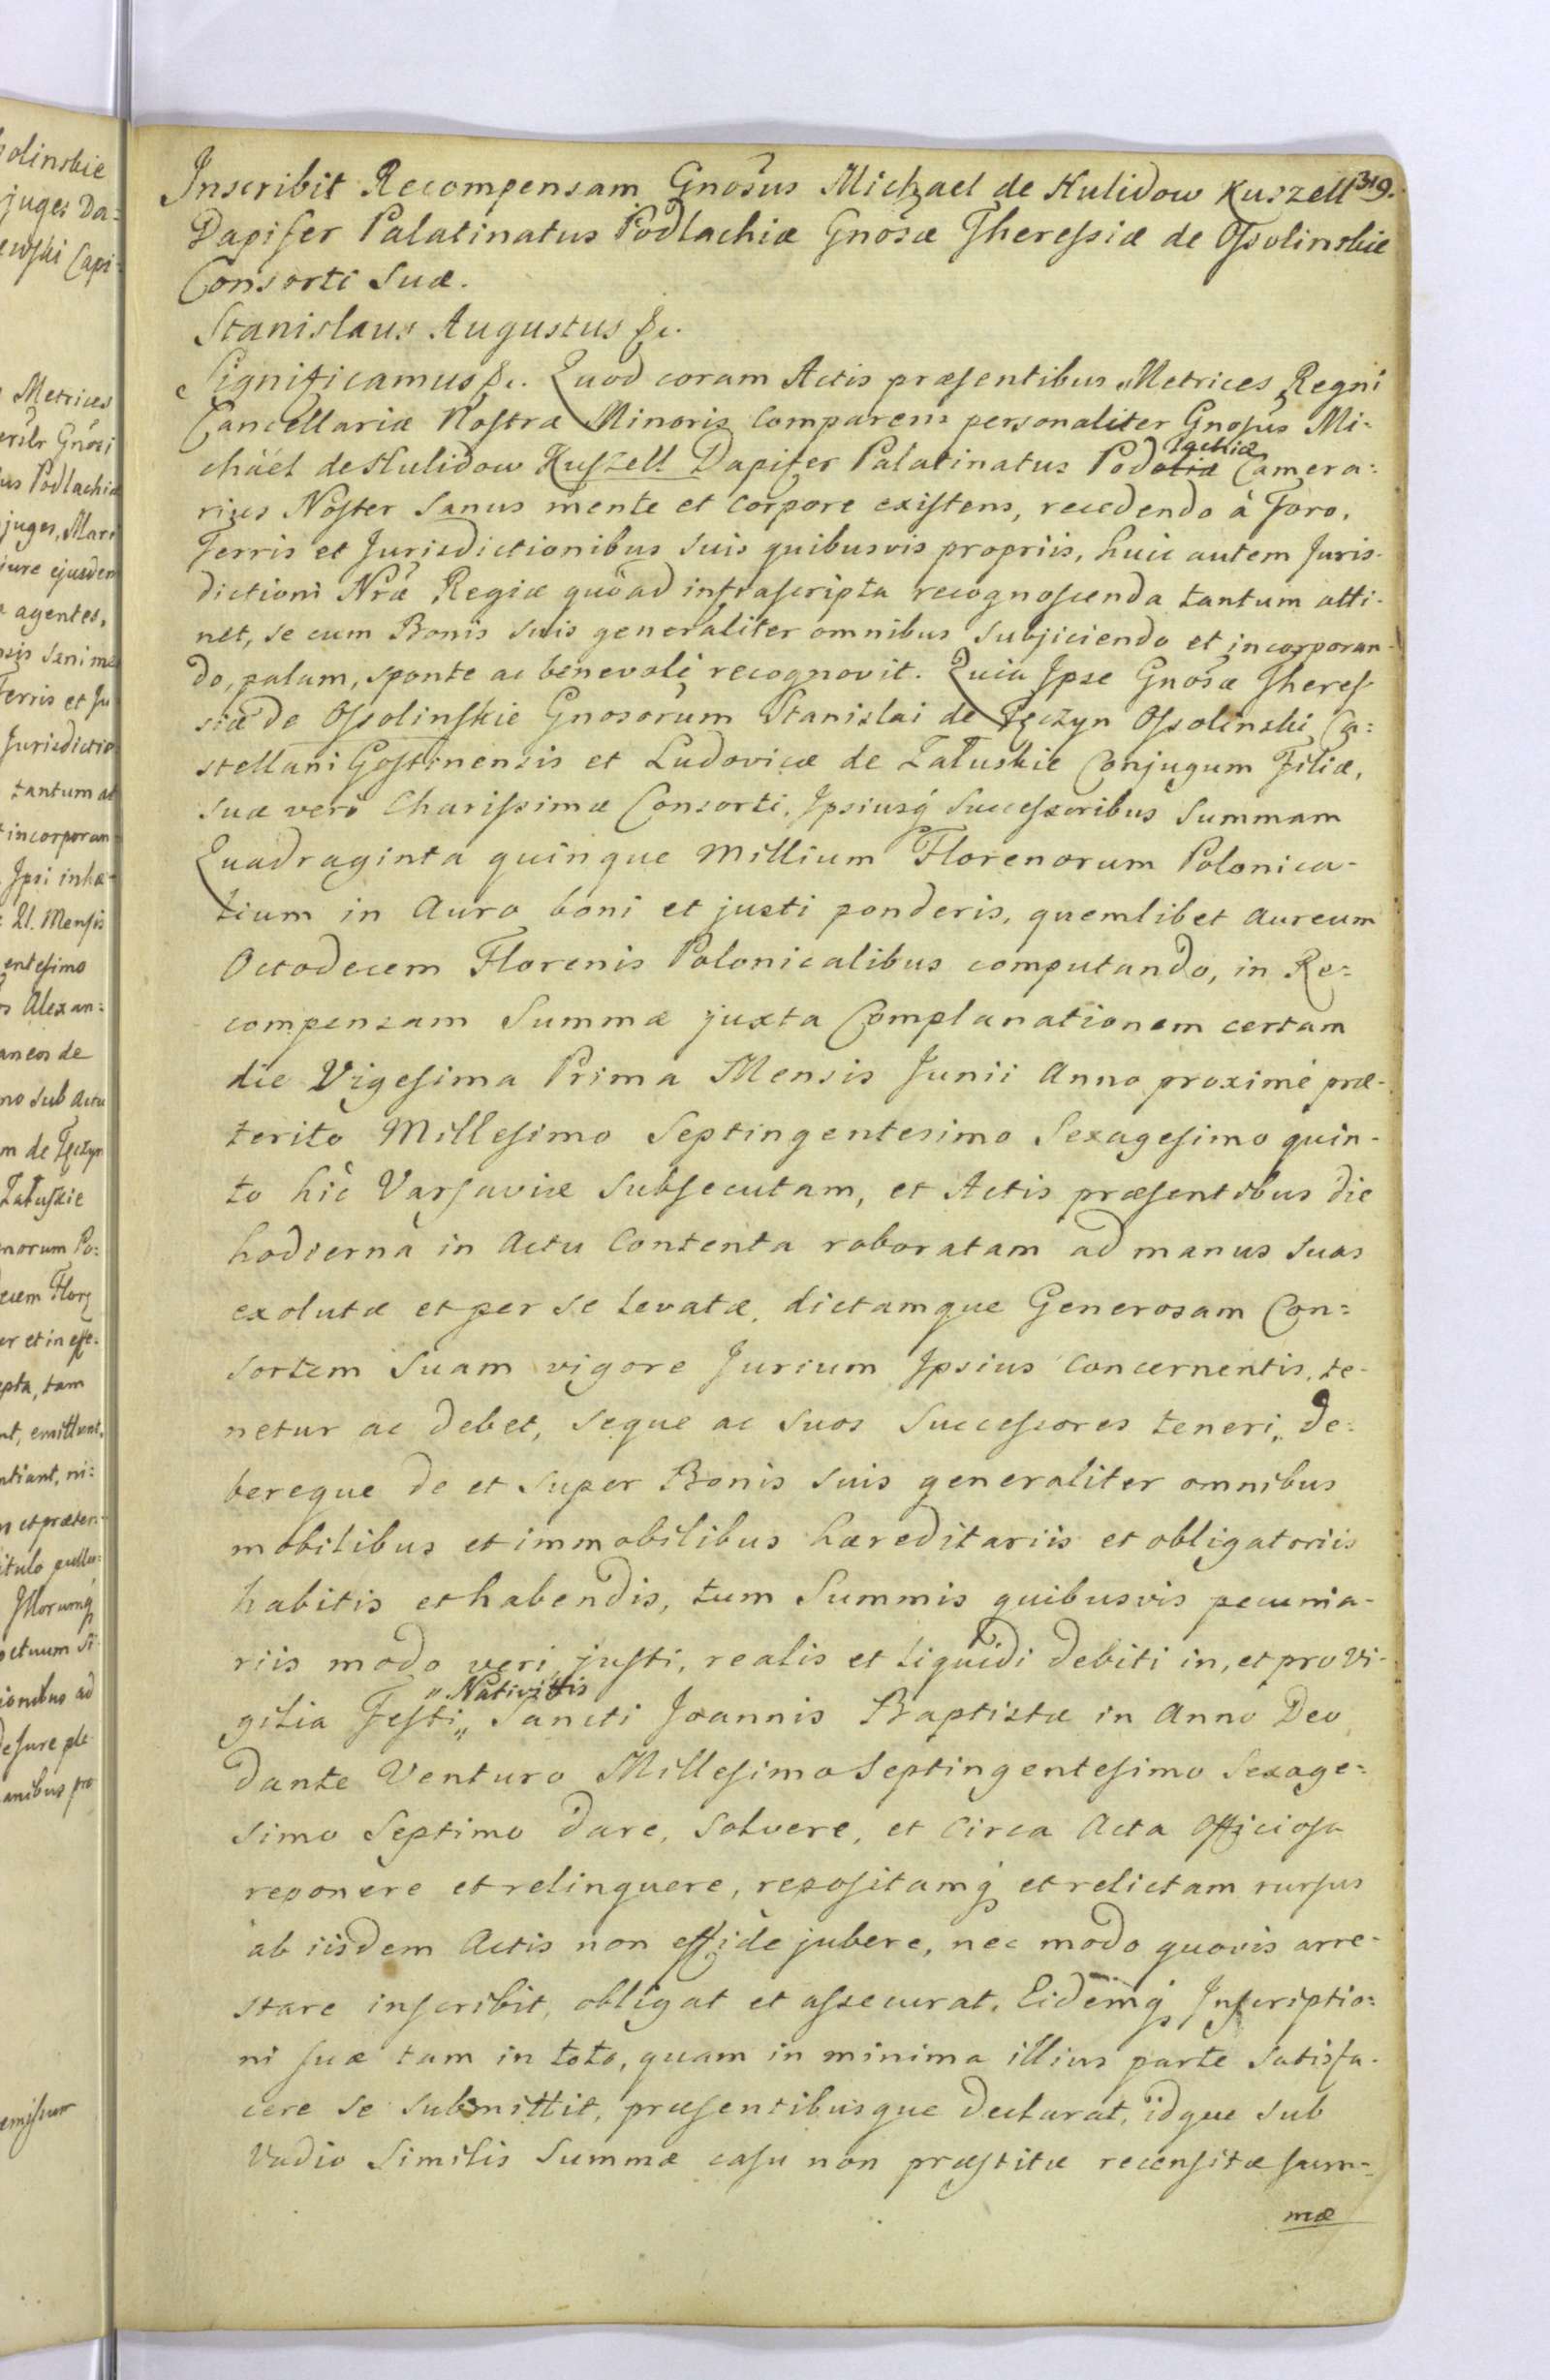 319.
Inscribit Recompensam Gnosus Michael de Kulidow Kuszell
Dapifer Palatinatus Podlachiæ Gnosæ Theressiæ de Ossolinskie
Consorti Suæ.
Stanislaus Augustus &c.
Significamus &c. Quod coram Actis præsentibus Metrices Regni
Cancellariæ Nostræ Minoris Comparens personaliter Gnosus Mi-
chäel de Kulidow Kuszell Dapifer Palatinatus Podoliæ lachiæ Camera:
rius Noster Sanus mente et corpore existens, recedendo à Foro,
Terris et Jurisdictionibus suis quibusvis propriis, huic autem Juris-
dictioni Nræ Regiæ quöad infrascripta recognoscenda tantum atti-
net, se cum Bonis suis generaliter omnibus subjiciendo et incorporan-
do, palam, sponte ac benevolè recognovit. Quia Ipse Gnosæ Theres-
siæ de Ossolinskie Gnosorum Stanislai de Tęczyn Ossolinski Ca:
stellani Gostinensis et Ludovicæ de Załuskie Conjugum Filiæ,
suæ verò Charissimæ Consorti, Ipsiusq́ Successoribus Summam
Quadraginta quinque Millium Florenorum Polonica-
lium in Auro boni et justi ponderis, quemlibet aureum
Octodecem Florenis Polonicalibus computando, in Re:
compensam Summæ juxta Complanationem certam
die Vigesima Prima Mensis Junii Anno proximè præ-
terito Millesimo Septingentesimo Sexagesimo quin-
to hìc Varsaviæ Subsecutam, et Actis præsentibus die
hodiernà in Actu Contenta roboratam ad manus suas
exolutæ et per se levatæ, dictamque Generosam Con:
sortem Suam vigore Jurium Ipsius concernentis, te-
netur ac debet, seque ac suos Successores teneri, de:
bereque de et super Bonis suis generaliter omnibus
mobilibus et immobilibus hæreditariis et obligatoriis
habitis et habendis, tum Summis quibusvis pecunia-
riis modo veri, justi, realis et liquidi debiti in, et pro Vi-
gilia Festi „ Nativittis Sancti Joannis Baptistæ in Anno Deo
dante Venturo Millesimo Septingentesimo Sexage:
simo Septimo dare, solvere, et circa Acta Officiosa
reponere et relinquere, repositamq́ et relictam rursus
ab iisdem Actis non effide jubere, nec modo quovis arre-
stare inscribit, obligat et assecurat, Eidemq́ Inscriptio:
ni suæ tam in toto, quam in minima illius parte satisfa-
cere se submittit, præsentibusque declarat, idque sub
Vadio Similis Summæ casu non præstitæ recensitæ sum-
mæ